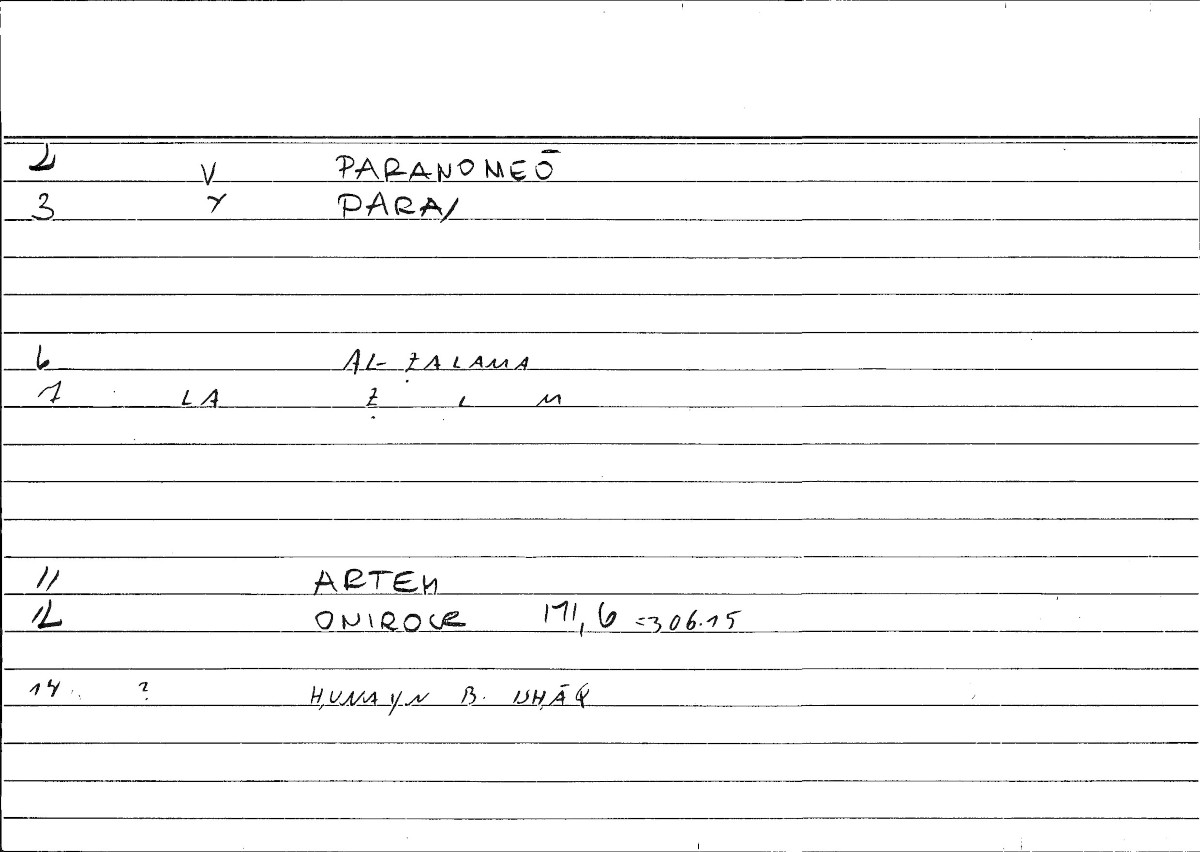 2 V PARANOMEŌ
3 γ PARA/
6 AL-ẒALAMA
7 LA Ẓ L M
11 ARTEM
12 ONIROCR 171,6 =306.15
14 ? ḤUNAYN B. ISḤĀQ